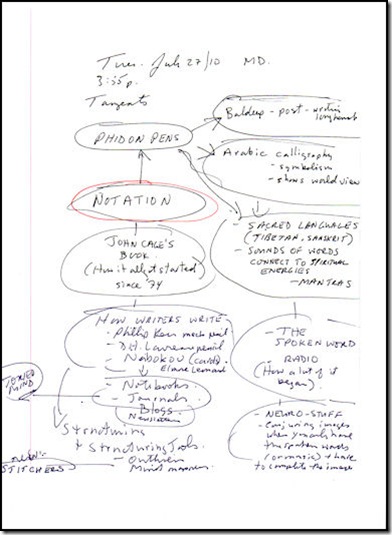 Tues. July 27/10 MD.
3:55p.
Tangents
PHIDON PENS
Baldeep - post - writing
longhand
Arabic calligraphy
- symbolism
- shows world view
NOTATION
- SACRED LANGUAGES
(TIBETAN, SANSKRIT)
- SOUNDS OF WORDS
CONNECT TO SPIRITUAL
ENERGIES
- MANTRAS
JOHN CAGE'S
BOOK
(How it all got started)
since '74
HOW WRITERS WRITE
- Philip Kerr
- DH Lawrence pencil
- Nabokov (cards)
Elmore Leonard
- THE
SPOKEN WORD
RADIO
(How a lot of it
began).
- Notebooks
- Journals
Blogs
Newsletters
MIND
Structuring
& Structuring Tools.
- Outlines
Mind mappers
NEW:
STITCHERS
- NEURO-STUFF
- Conjuring images
when you only have
the spoken words
(or music) & have
to complete the image